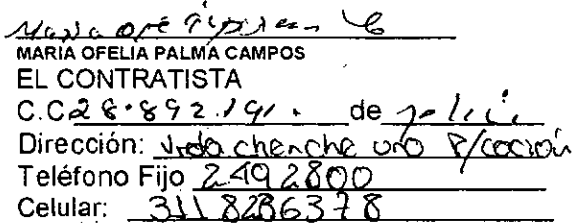 Maria ofe
MARIA OFELIA PALMA CAMPOS
EL CONTRATISTA
C.C 28.892.191. de
Dirección: Vrda chenche uno P/cación
Teléfono Fijo 2492800
Celular: 3118286378